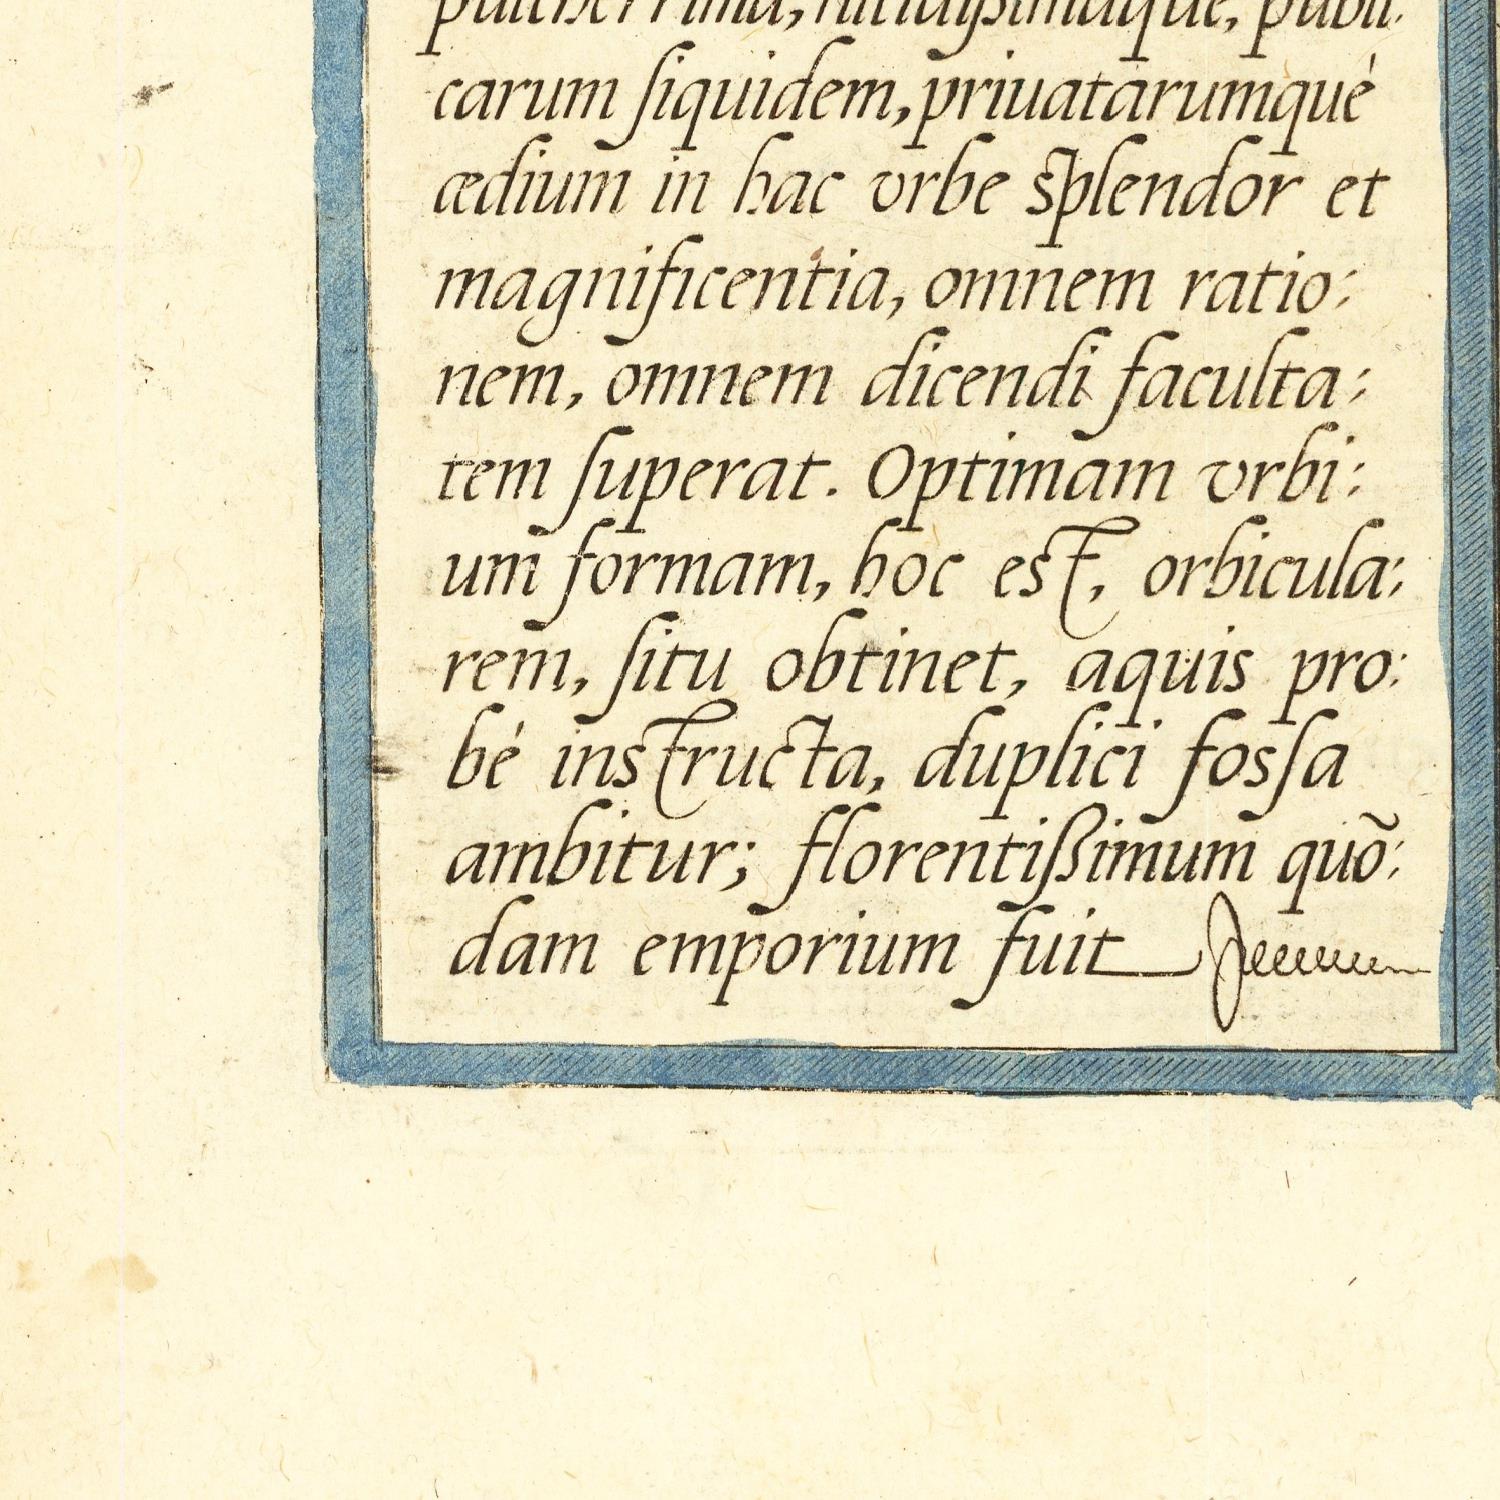 pulcherrima, nitidißimaque, publi:
carum ſiquidem, priuatarumqué
ædium in hac vrbe splendor et
magnificentia, omnem ratio:
nem, omnem dicendi faculta:
tem ſuperat. Optimam vrbi:
um formam, hoc est, orbicula:
rem, ſitu obtinet, aquis pro:
bé instructa, duplici fosſa
ambitur; florentißimum quõ:
dam emporium fuit